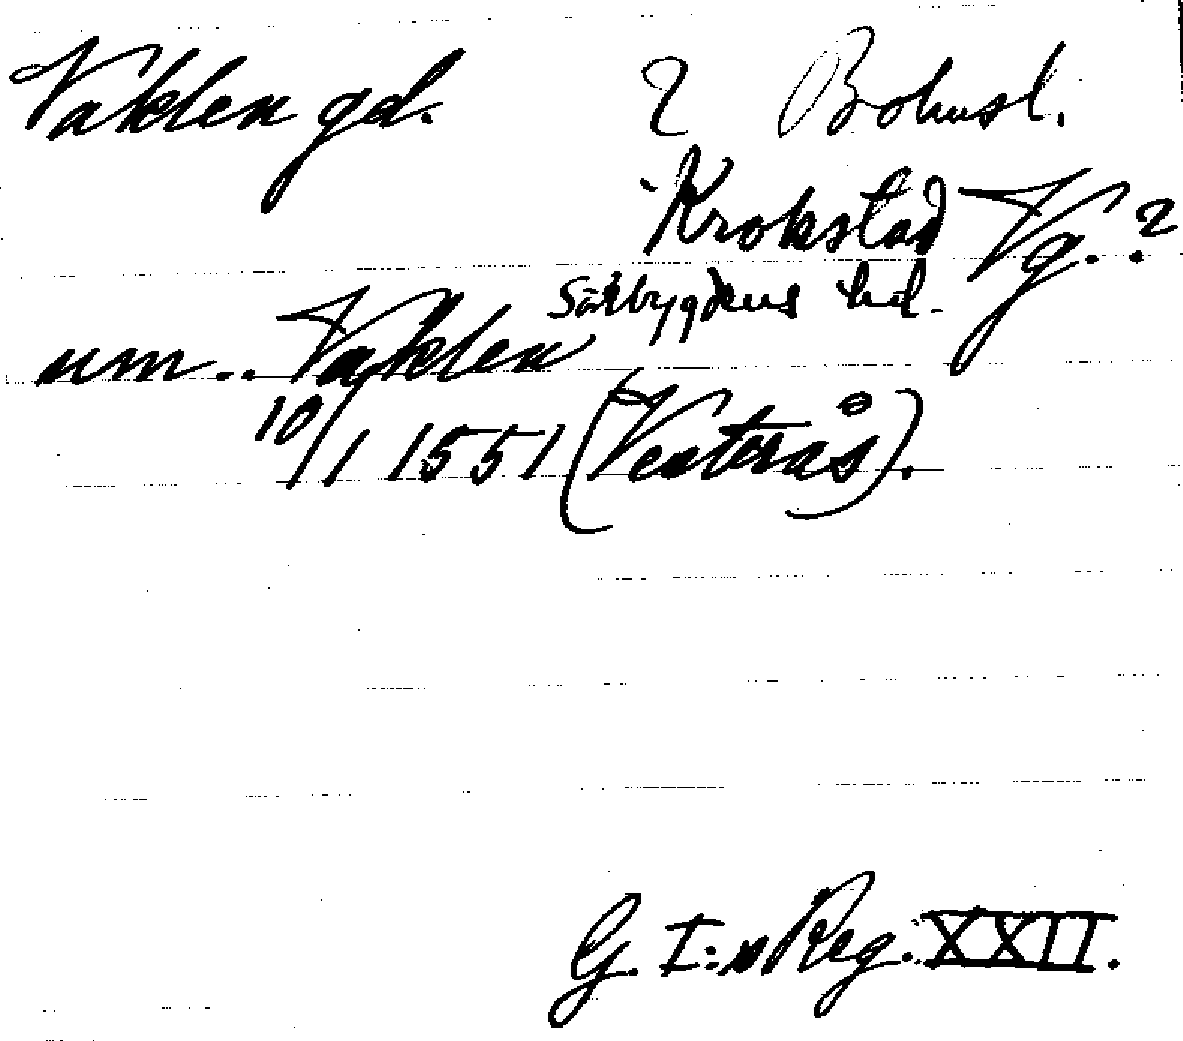 Vaklen gd. ? Bohusl.
Krokstad Vg.?
Sörbygdens hd.
um.. Vaklen
10/1 1551 (Vesterås).
G. I:s Reg. XXII.